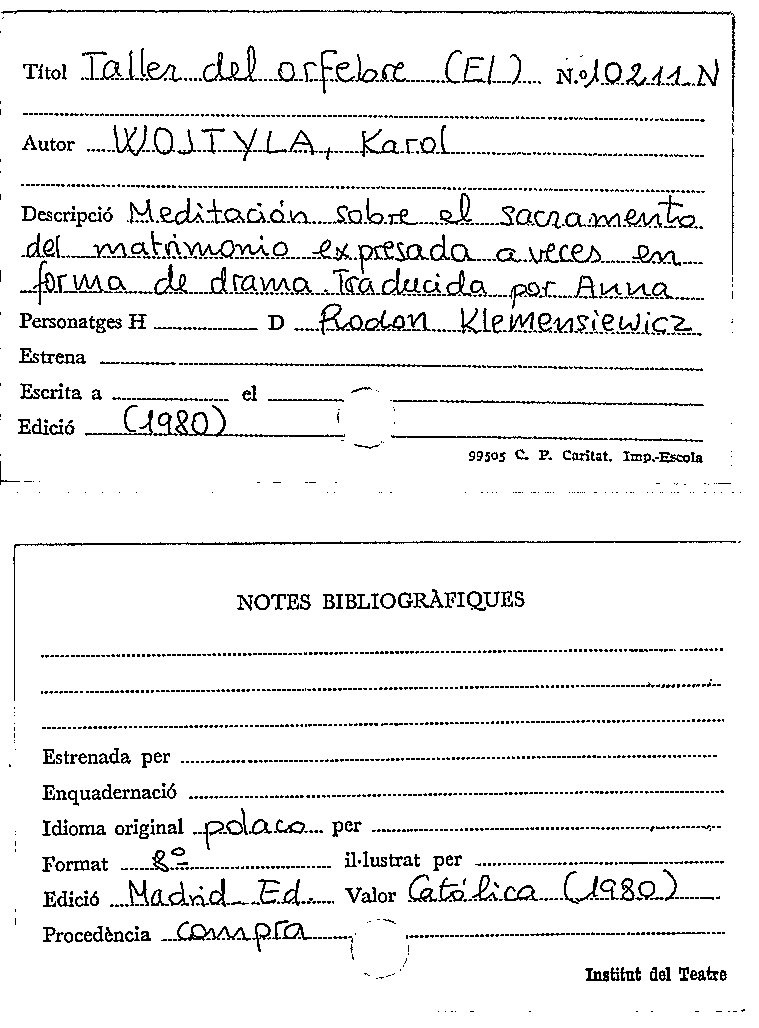 Títol Taller del orfebre (El) N.º 10211 N
Autor WOJTYLA, Karol
Descripció Meditación sobre el sacramento
del matrimonio expresada a veces en
forma de drama. Traducida por Anna
Personatges H D Rodon Klemensiewicz
Estrena
Escrita a el
Edició (1980)
99505 C. P. Caritat. Imp.-Escola
NOTES BIBLIOGRÀFIQUES
Estrenada per
Enquadernació
Idioma original polaco per
Format 8º il·lustrat per
Edició Madrid Ed. Valor Católica (1980)
Procedència compra
Institut del Teatre